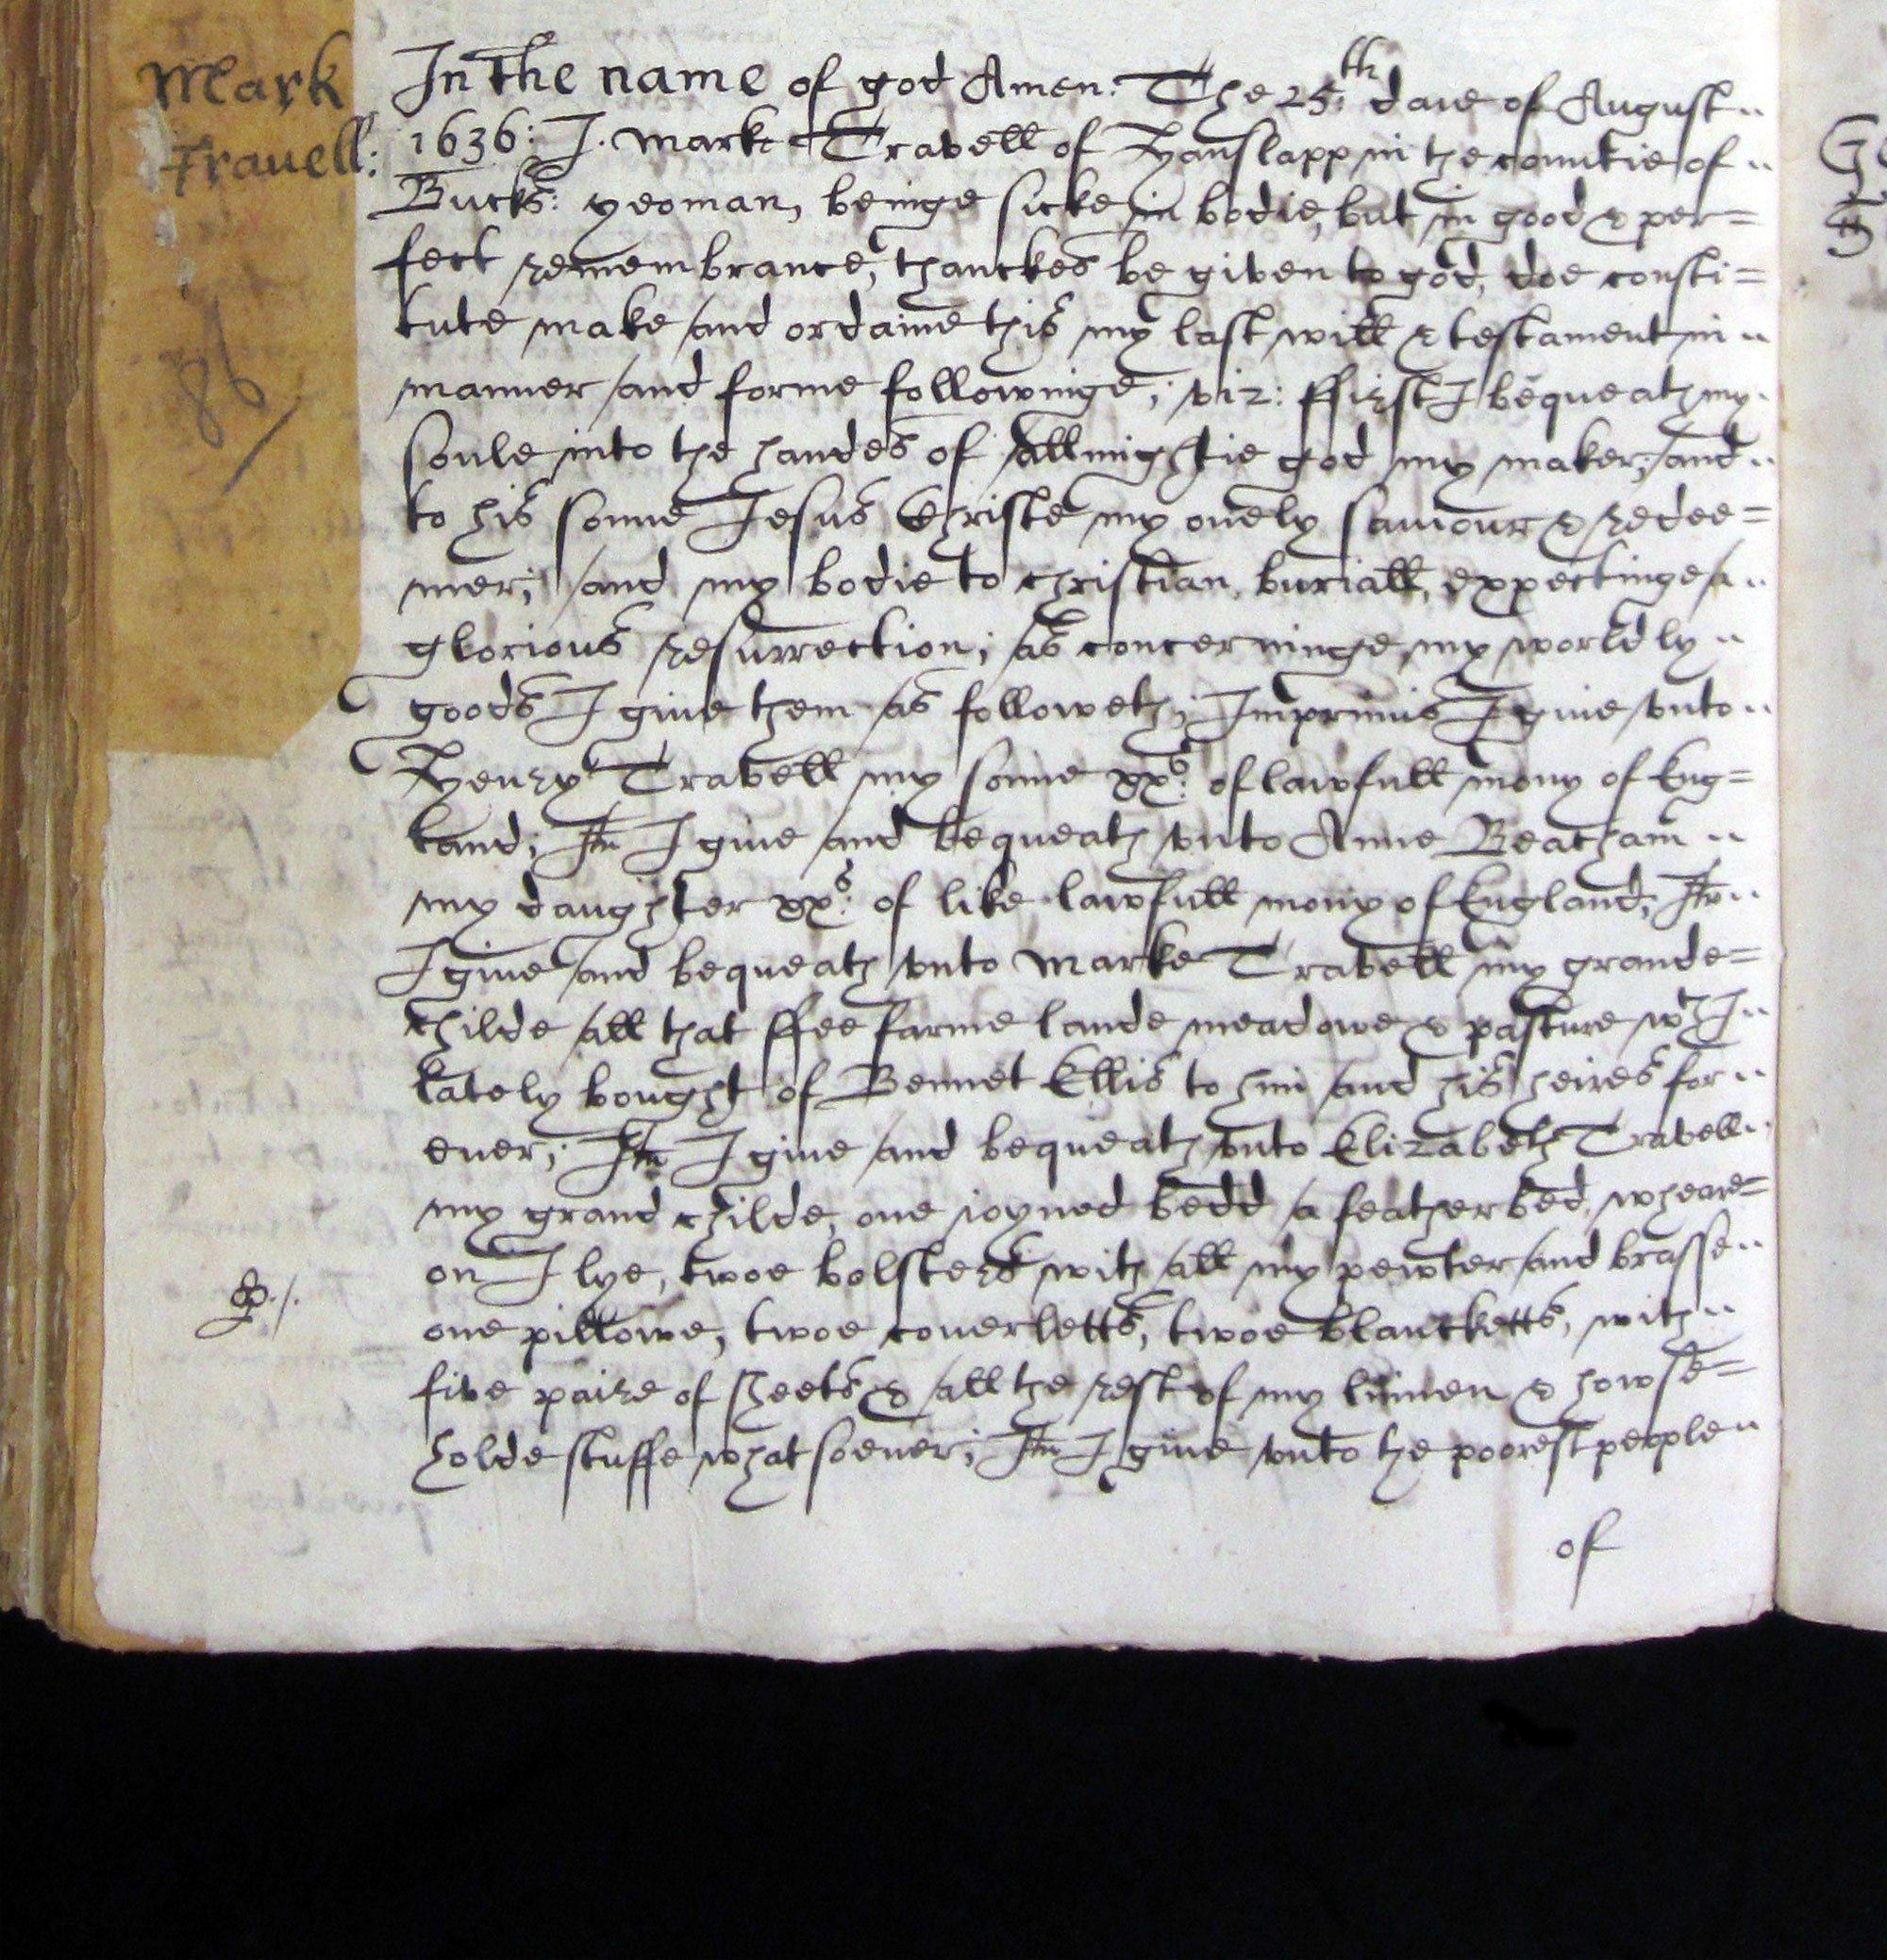 Mark
Travell:
In the name of god Amen: The 25:th daie of August
1636: I. Marke Travell of Hanslapp in the countie of
Bucks: yeoman, beinge sicke in bodie, but in good & per=
fect remembrance, thanckes be given to god, doe consti=
tute make and ordaine this my last will & testament in
manner and forme followinge; viz: ffirst I bequeath my
soule into the handes of allmightie god my maker, and
to his sonne Jesus Christe my onely saviour & redee=
mer; and my bodie to christian buriall, expectinge a
glorious resurrection; as concerninge my worldly
goods I give them as followeth; Imprimis I give vnto
Henry Travell my sonne xxs: of lawfull mony of Eng=
land; Itm I give and bequeath vnto Anne Beacham
my daughter xxs: of like lawfull mony of England; Itm
I give and bequeath vnto Marke Travell my grande=
childe all that ffee farme lande meadowe & pasture wch I
lately bought of Bennet Ellis to him and his heires for
ever; Itm I give and bequeath vnto Elizabeth Travell
my grand childe, one joyned bedd a feather bed, wheare=
on I lye, twoe bolsters with all my pewter and brasse
one pillowe, twoe coverletts, twoe blancketts, with
five paire of sheets & all the rest of my linnen & howse=
holde stuffe whatsoever; Itm I give vnto the poorest people
of